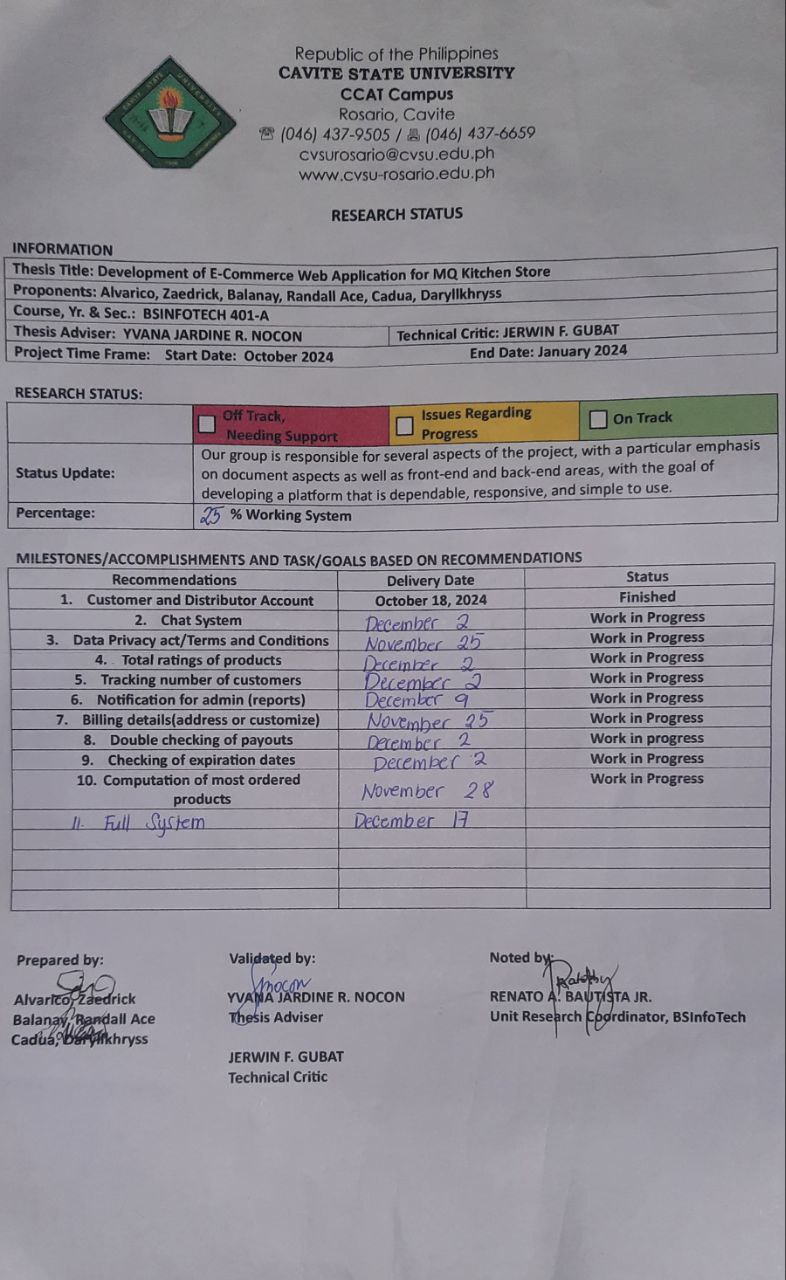 Republic of the Philippines
CAVITE STATE UNIVERSITY
CCAT Campus
Rosario, Cavite
☎ (046) 437-9505 / 🖷 (046) 437-6659
cvsurosario@cvsu.edu.ph
www.cvsu-rosario.edu.ph
RESEARCH STATUS
INFORMATION
Thesis Title: Development of E-Commerce Web Application for MQ Kitchen Store
Proponents: Alvarico, Zaedrick, Balanay, Randall Ace, Cadua, Daryllkhryss
Course, Yr. & Sec.: BSINFOTECH 401-A
Thesis Adviser: YVANA JARDINE R. NOCON Technical Critic: JERWIN F. GUBAT
Project Time Frame: Start Date: October 2024 End Date: January 2024
RESEARCH STATUS:
Off Track,
Needing Support
Issues Regarding
Progress
On Track
Status Update:
Our group is responsible for several aspects of the project, with a particular emphasis
on document aspects as well as front-end and back-end areas, with the goal of
developing a platform that is dependable, responsive, and simple to use.
Percentage: 25 % Working System
MILESTONES/ACCOMPLISHMENTS AND TASK/GOALS BASED ON RECOMMENDATIONS
Recommendations Delivery Date Status
1. Customer and Distributor Account October 18, 2024 Finished
2. Chat System December 2 Work in Progress
3. Data Privacy act/Terms and Conditions November 25 Work in Progress
4. Total ratings of products December 2 Work in Progress
5. Tracking number of customers December 2 Work in Progress
6. Notification for admin (reports) December 9 Work in Progress
7. Billing details(address or customize) November 25 Work in Progress
8. Double checking of payouts December 2 Work in progress
9. Checking of expiration dates December 2 Work in Progress
10. Computation of most ordered
products November 28 Work in Progress
11. Full System December 17
Prepared by: Validated by: Noted by:
Alvarico, Zaedrick YVANA JARDINE R. NOCON RENATO A. BAUTISTA JR.
Balanay, Randall Ace Thesis Adviser Unit Research Coordinator, BSInfoTech
Cadua, Daryllkhryss
JERWIN F. GUBAT
Technical Critic